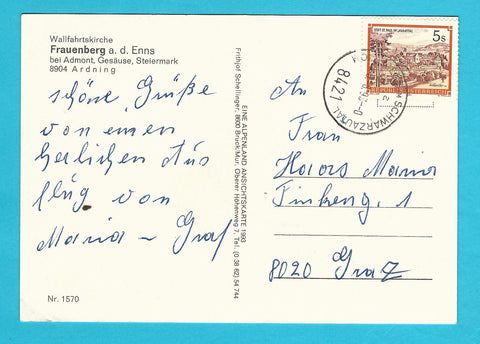 Wallfahrtskirche
Frauenberg a. d. Enns
bei Admont, Gesäuse, Steiermark
8904 Ardning
schöne Grüße
von einen
herlichen Aus
flug von
Maria - Graf
Nr. 1570
EINE ALPENLAND ANSICHTSKARTE 1993
Frithjof Schellinger, 8600 Bruck/Mur, Oberer Hohenweg 7, Tel. (0 38 62) 54 744
5s
REPUBLIK ÖSTERREICH
SCHWARZAUTAL
8421
An
Frau
Maria
8020 Graz